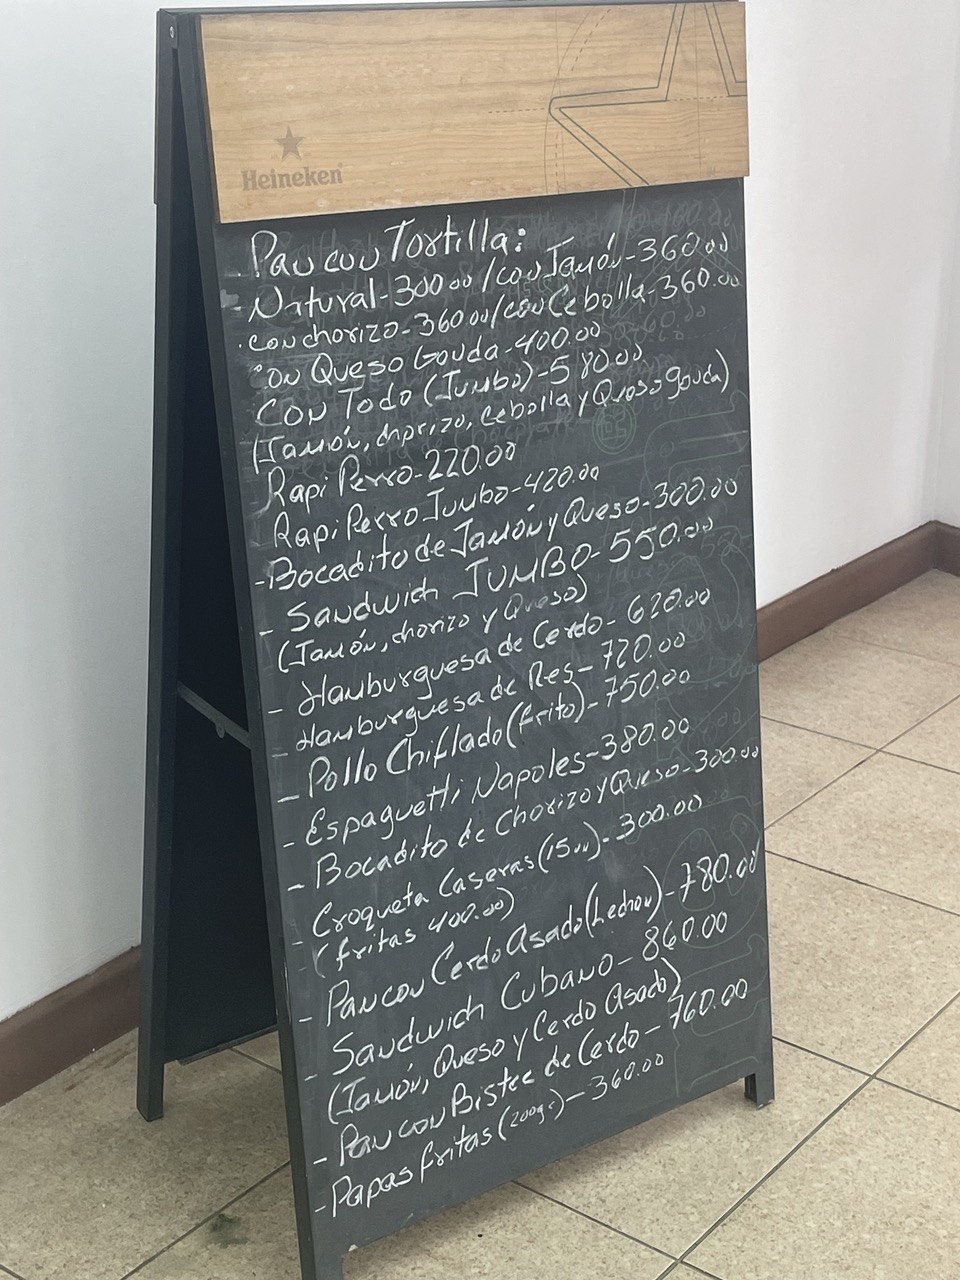 Heineken
Pan con Tortilla:
- Natural-300.00/con Jamón-360.00
- con chorizo-360.00/con Cebolla-360.00
con Queso Gouda-400.00
con Todo (Jumbo)-580.00
(Jamón, chorizo, cebolla y Queso gouda)
Rapi Perro-220.00
Rapi Perro Jumbo-420.00
-Bocadito de Jamón y Queso-300.00
- Sandwich JUMBO-550.00
(Jamón, chorizo y Queso)
- Hamburguesa de Cerdo-620.00
- Hamburguesa de Res-720.00
- Pollo Chiflado (frito)-750.00
- Espaguetti Napoles-380.00
- Bocadito de Chorizo y Queso-300.00
- Croqueta Caseras (15uu)-300.00
(fritas 400.00)
- Pan con Cerdo Asado (Lechon)-780.00
- Sandwich Cubano-860.00
(Jamón, Queso y Cerdo Asado)
- Pan con Bistec de Cerdo-760.00
- Papas fritas (200gr)-360.00